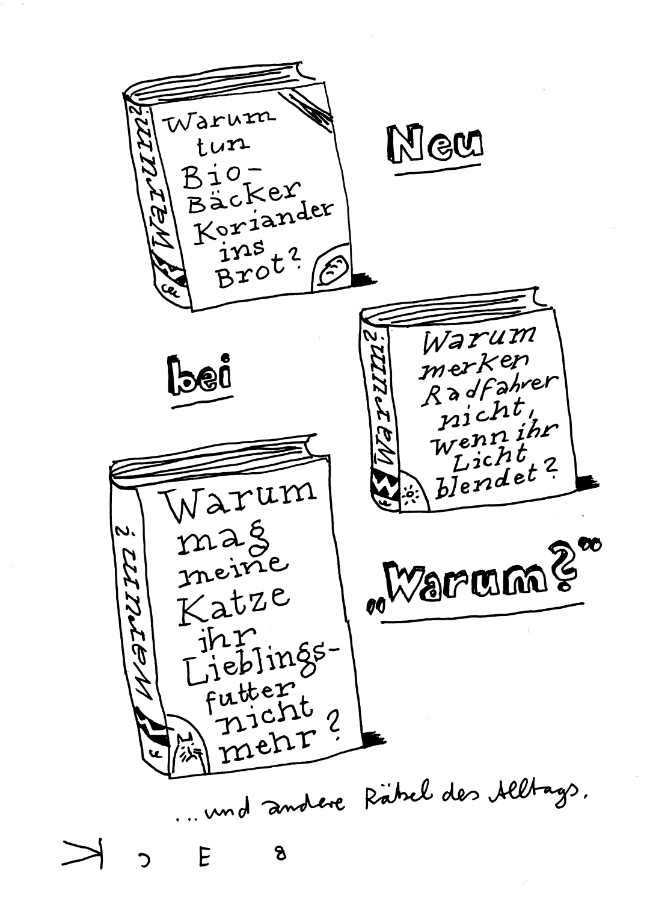 Warum?
Warum
tun
Bio-
Bäcker
Koriander
ins
Brot?
Neu
bei
Warum?
Warum
merken
Radfahrer
nicht,
wenn ihr
Licht
blendet?
Warum?
Warum
mag
meine
Katze
ihr
Lieblings-
futter
nicht
mehr?
„Warum?“
...und andere Rätsel des Alltags.